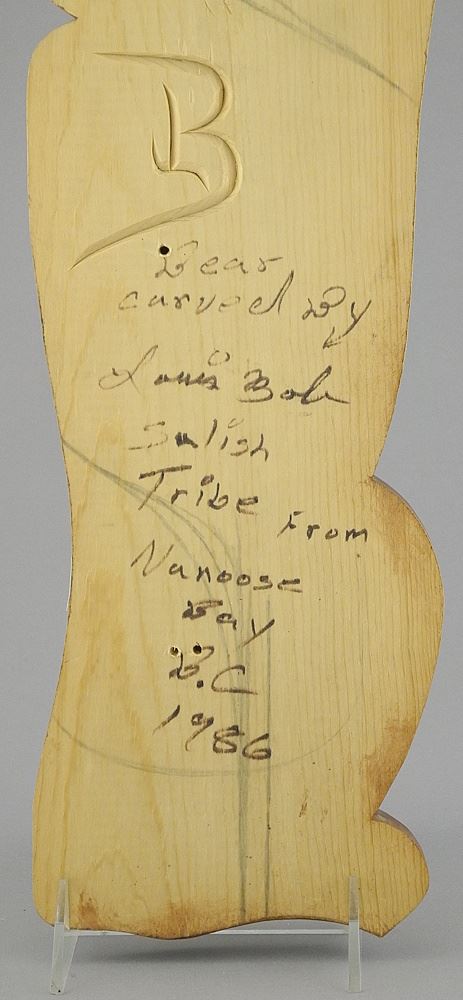 B
Bear
carved By
Louis Bob
Salish
Tribe From
Nanoose
Bay
B.C
1986